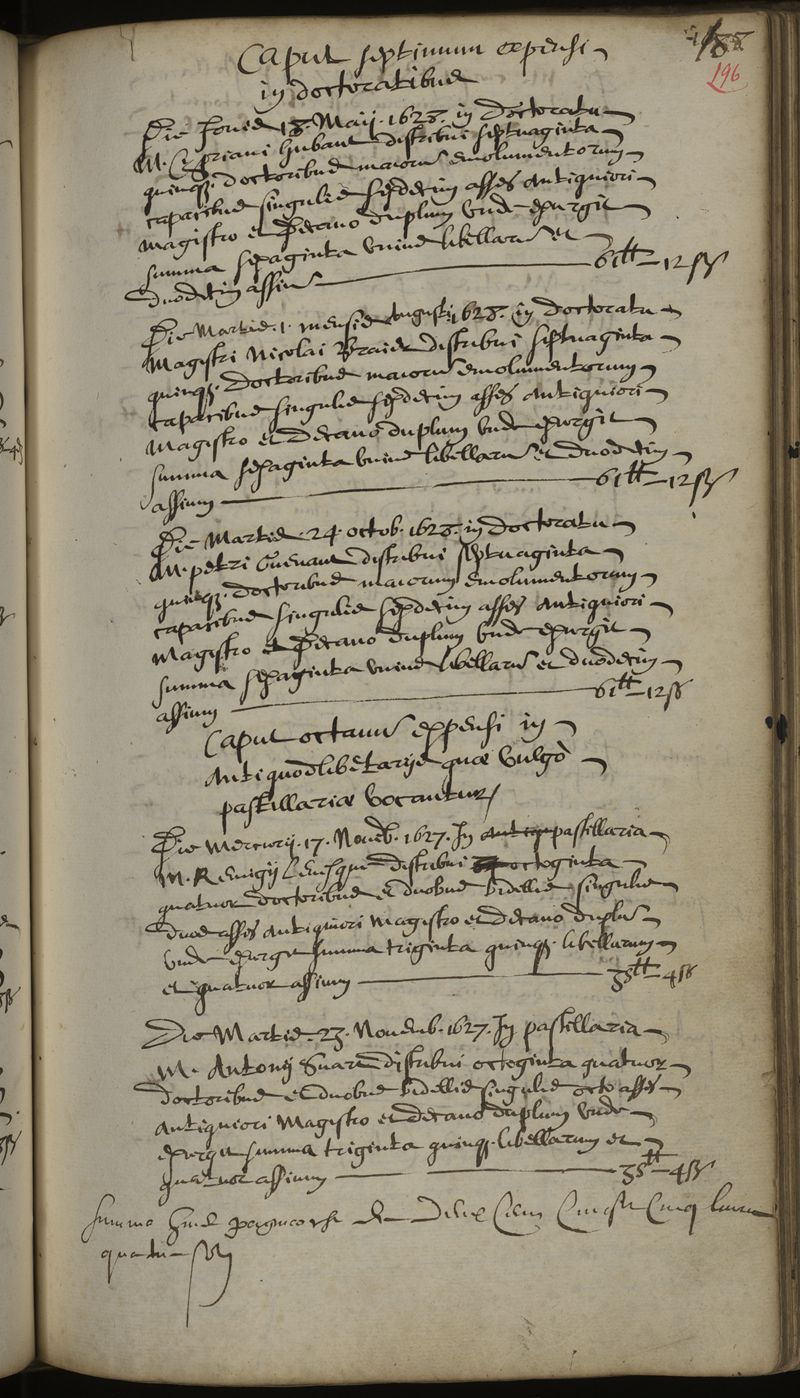 188
196
Caput septimum expensi
in doctoratibus
Die Jovis 18. Maij. 1628. in doctoratu
M. Cypriani Hubaut distribui septuaginta
quinq; doctoribus maiorum emolumentorum
capacibus singulis sexdecim asses antiquiori
magistro et Decano duplum unde exurgit
summa sexaginta unius libellarum et
duodecim assium 61lt 12ß
Die Martis. 1. mensis Augusti 1628. in doctoratu
Magistri Nicolai Braier distribui septuaginta
quinq; doctoribus maiorum emolumentorum
capacibus singulis sexdecim asses antiquiori
magistro et Decano duplum unde exurgit
summa sexaginta unius libellarum et duodecim
assium 61lt 12ß
Die Martis. 24. octob. 1628. in doctoratu
M. petri Guenaut distribui septuaginta
quinq; doctoribus maiorum emolumentorum
capacibus singulis sexdecim asses antiquiori
Magistro et Decano duplum unde exurgit
summa sexaginta unius libellarum et duodecim
assium 61lt 12ß
Caput octavum expensi in
Antiquodlibetarijs quæ vulgò
pastillariæ vocantur
Die Mercurij. 17. Novēb. 1627. In pastillaria
M. Remigij distribui octoginta
quatuor doctoribus et duobus bidellis singulis
asses antiquiori Magistro et Decano duplum
unde exurgit summa triginta quinq; libellarum
et quatuor assium 35lt 4ß
Die Martis. 23. Novemb. 1627. In pastillaria
M. Antonij distribui octoginta quatuor
doctoribus et duobus bidellis singulis octo asses
Antiquiori Magistro et Decano duplum unde
exurgit summa triginta quinq; libellarum et
quatuor assium 35lt 4ß
Summa huius paginæ est de deux Cens Cinq livres
quatre solz